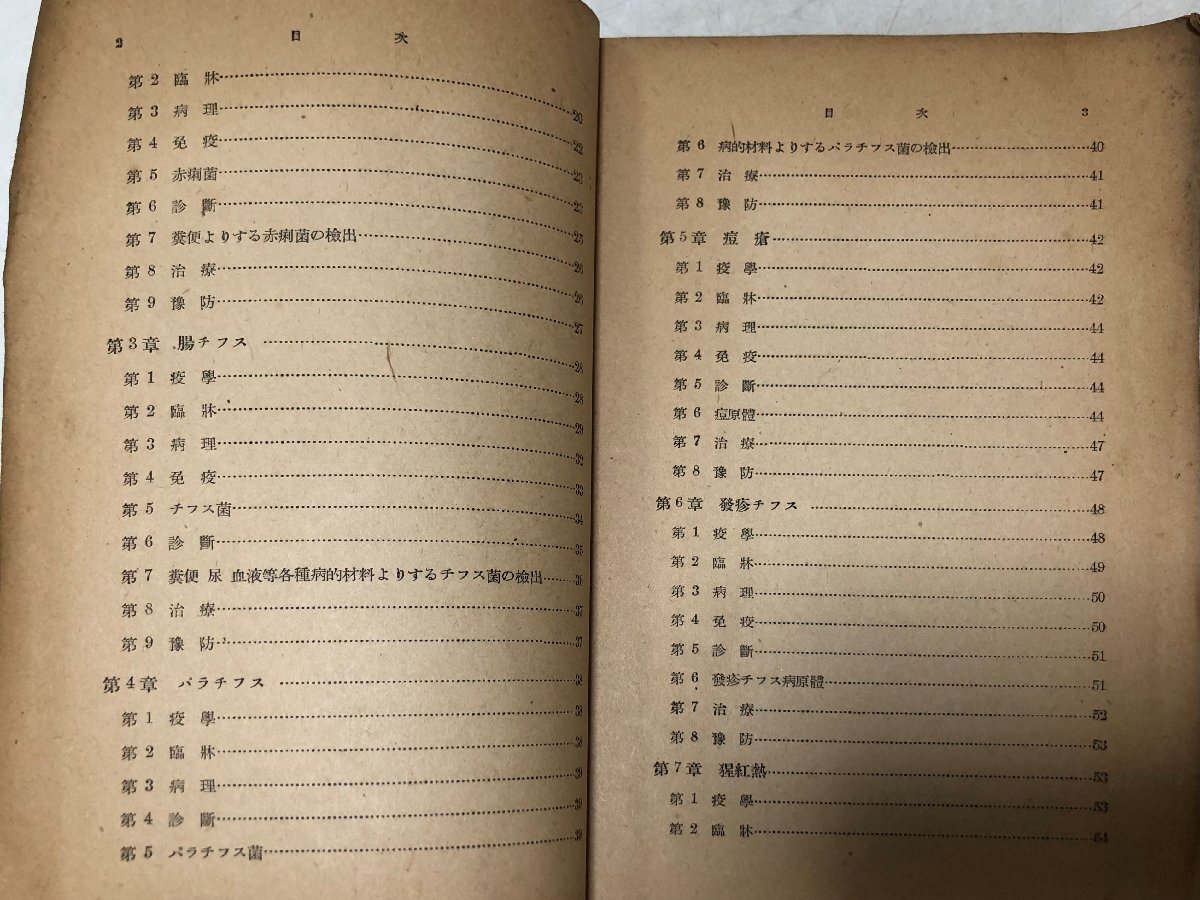 2 目次
第2 臨牀……20
第3 病理……22
第4 免疫……23
第5 赤痢菌……23
第6 診斷……25
第7 糞便よりする赤痢菌の檢出……26
第8 治療……26
第9 豫防……27
第3章 腸チフス……28
第1 疫學……28
第2 臨牀……29
第3 病理……32
第4 免疫……33
第5 チフス菌……34
第6 診斷……35
第7 糞便 尿 血液等各種病的材料よりするチフス菌の檢出……36
第8 治療……37
第9 豫防……37
第4章 パラチフス……38
第1 疫學……38
第2 臨牀……38
第3 病理……39
第4 診斷……39
第5 パラチフス菌……39
目次 3
第6 病的材料よりするパラチフス菌の檢出……40
第7 治療……41
第8 豫防……41
第5章 痘瘡……42
第1 疫學……42
第2 臨牀……42
第3 病理……44
第4 免疫……44
第5 診斷……44
第6 痘原體……44
第7 治療……47
第8 豫防……47
第6章 發疹チフス……48
第1 疫學……48
第2 臨牀……49
第3 病理……50
第4 免疫……50
第5 診斷……51
第6 發疹チフス病原體……51
第7 治療……52
第8 豫防……53
第7章 猩紅熱……53
第1 疫學……53
第2 臨牀……54